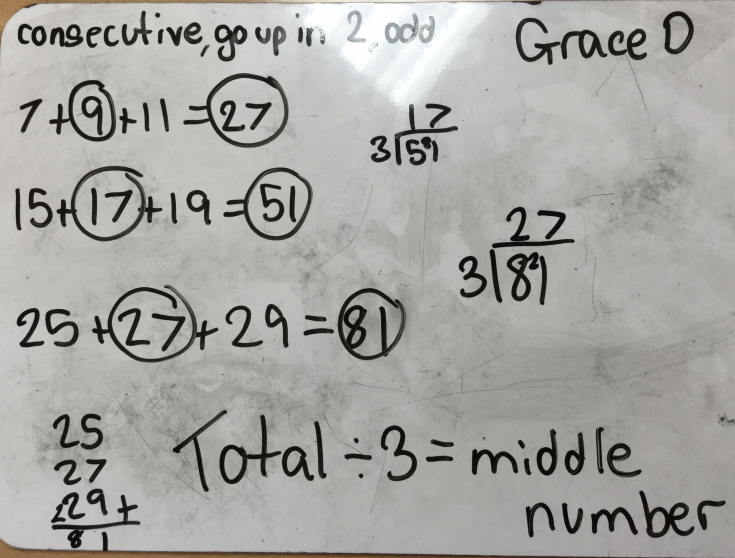 consecutive, go up in 2, odd
Grace D
7+9+11=27
17
3 5²1
15+17+19=51
27
3 8²1
25+27+29=81
25
27
229+
81
Total÷3=middle
number